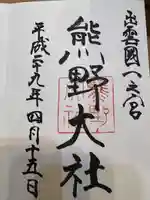 出雲國一之宮
熊野大社
平成廿九年四月十五日